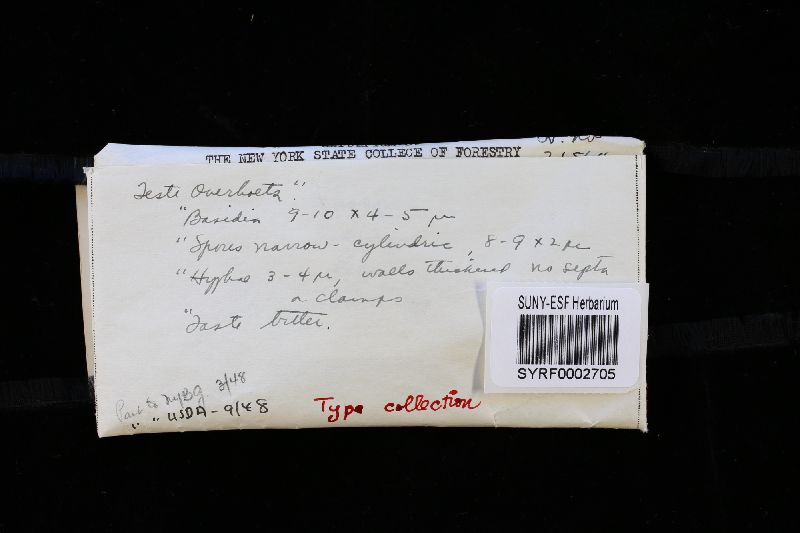 THE NEW YORK STATE COLLEGE OF FORESTRY
Teste Overholts."
"Basidia 9-10 x 4-5 µ
"Spores narrow-cylindric, 8-9 x 2 µ
"Hyphae 3-4 µ, walls thickened no septa
or clamps
"Taste bitter.
SUNY-ESF Herbarium
SYRF0002705
Part to NYBG. 3/48
" " USDA-9/48
Type collection